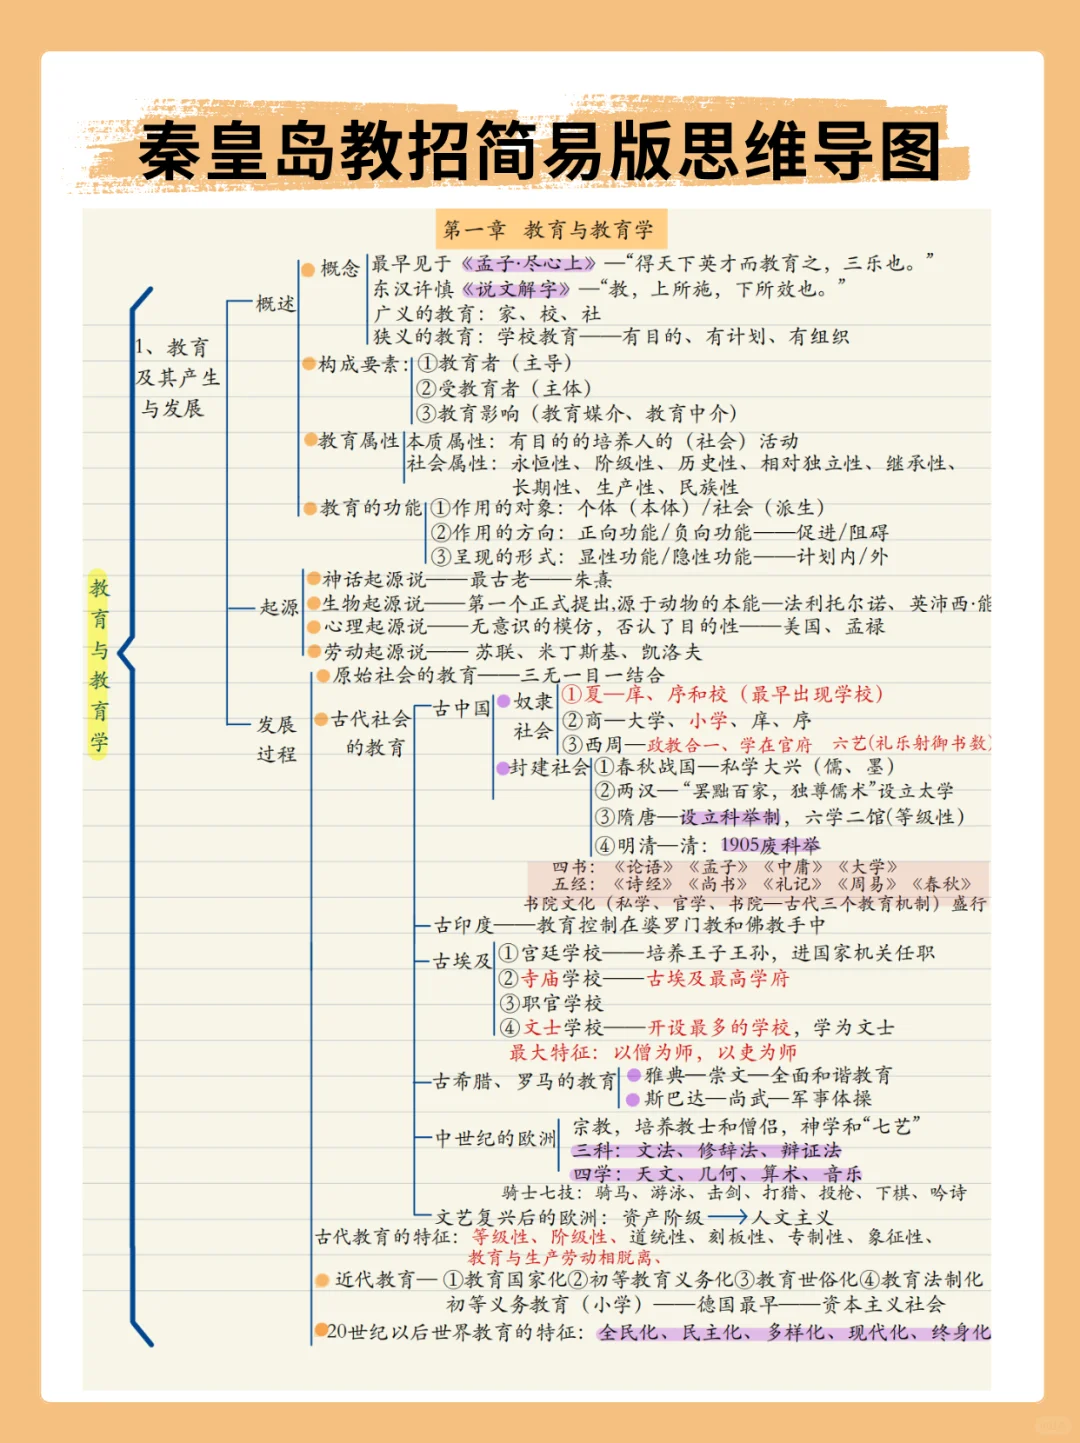 秦皇岛教招简易版思维导图
第一章 教育与教育学
教育与教育学
1、教育
及其产生
与发展
概述
概念
最早见于《孟子·尽心上》—“得天下英才而教育之，三乐也。”
东汉许慎《说文解字》—“教，上所施，下所效也。”
广义的教育：家、校、社
狭义的教育：学校教育——有目的、有计划、有组织
构成要素：
①教育者（主导）
②受教育者（主体）
③教育影响（教育媒介、教育中介）
教育属性
本质属性：有目的的培养人的（社会）活动
社会属性：永恒性、阶级性、历史性、相对独立性、继承性、
长期性、生产性、民族性
教育的功能
①作用的对象：个体（本体）/社会（派生）
②作用的方向：正向功能/负向功能——促进/阻碍
③呈现的形式：显性功能/隐性功能——计划内/外
起源
神话起源说——最古老——朱熹
生物起源说——第一个正式提出,源于动物的本能—法利托尔诺、英沛西·能
心理起源说——无意识的模仿，否认了目的性——美国、孟禄
劳动起源说——苏联、米丁斯基、凯洛夫
发展
过程
原始社会的教育——三无一目一结合
古代社会
的教育
古中国
奴隶
社会
①夏—庠、序和校（最早出现学校）
②商—大学、小学、庠、序
③西周—政教合一、学在官府 六艺(礼乐射御书数)
封建社会
①春秋战国—私学大兴（儒、墨）
②两汉—“罢黜百家，独尊儒术”设立太学
③隋唐—设立科举制，六学二馆(等级性)
④明清—清：1905废科举
四书：《论语》《孟子》《中庸》《大学》
五经：《诗经》《尚书》《礼记》《周易》《春秋》
书院文化（私学、官学、书院—古代三个教育机制）盛行
古印度——教育控制在婆罗门教和佛教手中
古埃及
①宫廷学校——培养王子王孙，进国家机关任职
②寺庙学校——古埃及最高学府
③职官学校
④文士学校——开设最多的学校，学为文士
最大特征：以僧为师，以吏为师
古希腊、罗马的教育
雅典—崇文—全面和谐教育
斯巴达—尚武—军事体操
中世纪的欧洲
宗教，培养教士和僧侣，神学和“七艺”
三科：文法、修辞法、辩证法
四学：天文、几何、算术、音乐
骑士七技：骑马、游泳、击剑、打猎、投枪、下棋、吟诗
文艺复兴后的欧洲：资产阶级→人文主义
古代教育的特征：等级性、阶级性、道统性、刻板性、专制性、象征性、
教育与生产劳动相脱离、
近代教育—①教育国家化②初等教育义务化③教育世俗化④教育法制化
初等义务教育（小学）——德国最早——资本主义社会
20世纪以后世界教育的特征：全民化、民主化、多样化、现代化、终身化